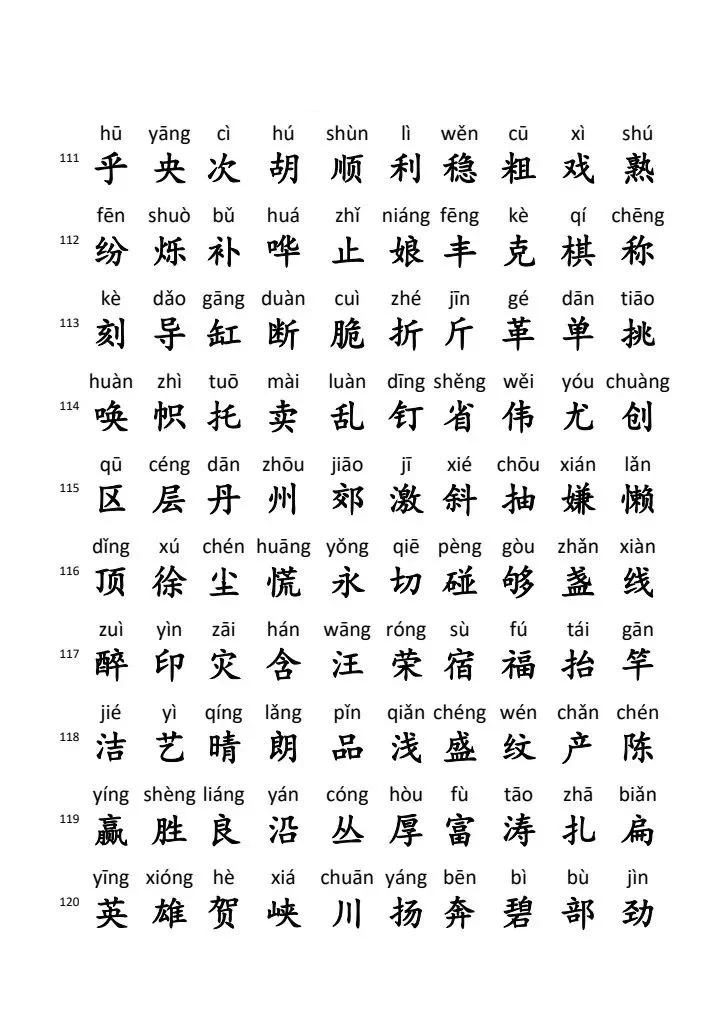 hū yāng cì hú shùn lì wěn cū xì shú
111 乎 央 次 胡 顺 利 稳 粗 戏 熟
fēn shuò bǔ huá zhǐ niáng fēng kè qí chēng
112 纷 烁 补 哗 止 娘 丰 克 棋 称
kè dǎo gāng duàn cuì zhé jīn gé dān tiāo
113 刻 导 缸 断 脆 折 斤 革 单 挑
huàn zhì tuō mài luàn dīng shěng wěi yóu chuàng
114 唤 帜 托 卖 乱 钉 省 伟 尤 创
qū céng dān zhōu jiāo jī xié chōu xián lǎn
115 区 层 丹 州 郊 激 斜 抽 嫌 懒
dǐng xú chén huāng yǒng qiē pèng gòu zhǎn xiàn
116 顶 徐 尘 慌 永 切 碰 够 盏 线
zuì yìn zāi hán wāng róng sù fú tái gān
117 醉 印 灾 含 汪 荣 宿 福 抬 竿
jié yì qíng lǎng pǐn qiǎn chéng wén chǎn chén
118 洁 艺 晴 朗 品 浅 盛 纹 产 陈
yíng shèng liáng yán cóng hòu fù tāo zhā biǎn
119 赢 胜 良 沿 丛 厚 富 涛 扎 扁
yīng xióng hè xiá chuān yáng bēn bì bù jìn
120 英 雄 贺 峡 川 扬 奔 碧 部 劲